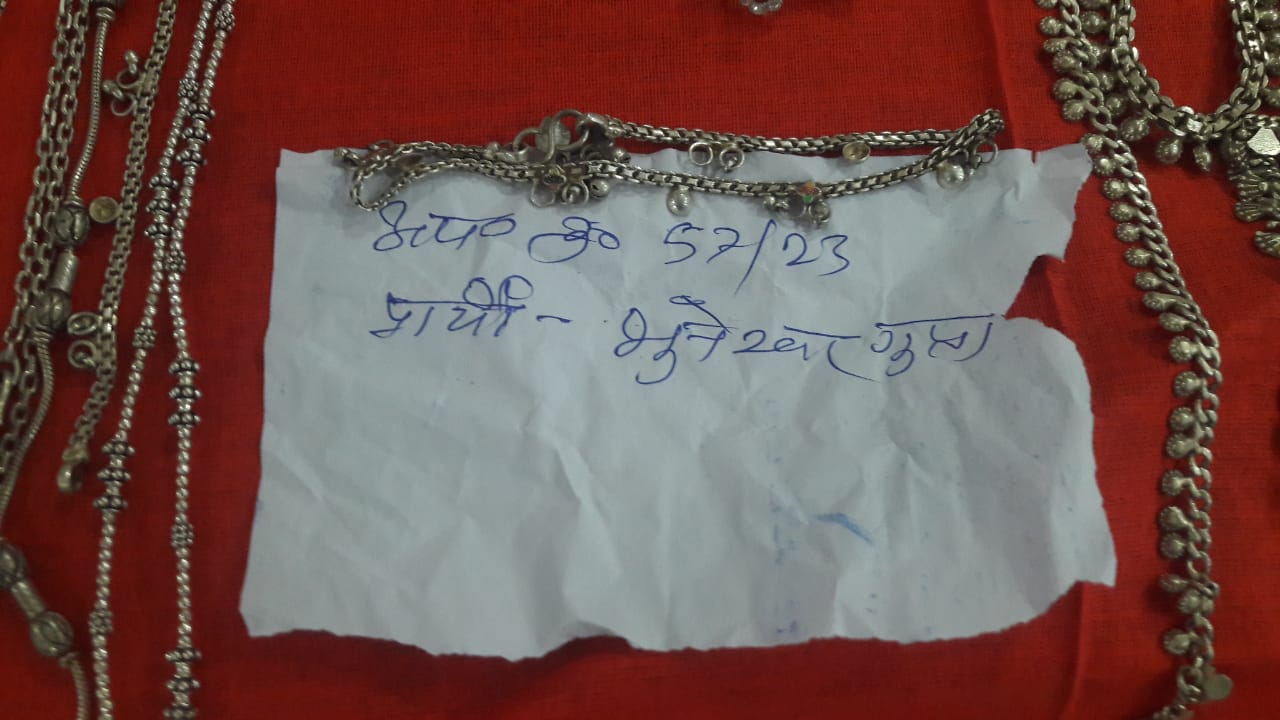 अप० क्र० 57/23
प्रार्थी - भुनेश्वर गुप्ता